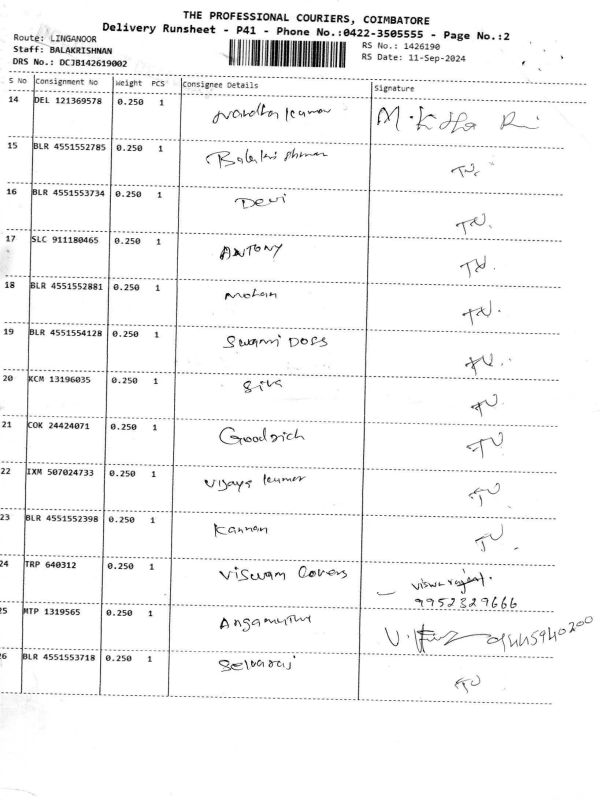 THE PROFESSIONAL COURIERS, COIMBATORE
Delivery Runsheet - P41 - Phone No.:0422-3505555 - Page No.:2
Route: LINGANOOR
Staff: BALAKRISHNAN
DRS No.: DCJB142619002
RS No.: 1426190
RS Date: 11-Sep-2024
S No Consignment No Weight PCS Consignee Details Signature
14 DEL 121369578 0.250 1 kumar
15 BLR 4551552785 0.250 1 Balakrishnan TU.
16 BLR 4551553734 0.250 1 Devi TU.
17 SLC 911180465 0.250 1 ANTONY TU.
18 BLR 4551552881 0.250 1 Mohan TU.
19 BLR 4551554128 0.250 1 Swami DOSS TU..
20 KCM 13196035 0.250 1 Siva TU
21 COK 24424071 0.250 1 Goodrich TU
22 IXM 507024733 0.250 1 Vijaya kumar TU
23 BLR 4551552398 0.250 1 Kannan TU.
24 TRP 640312 0.250 1 Viswam Covers
9952329666
25 MTP 1319565 0.250 1 Angamuthu
26 BLR 4551553718 0.250 1 Selvaraj TU